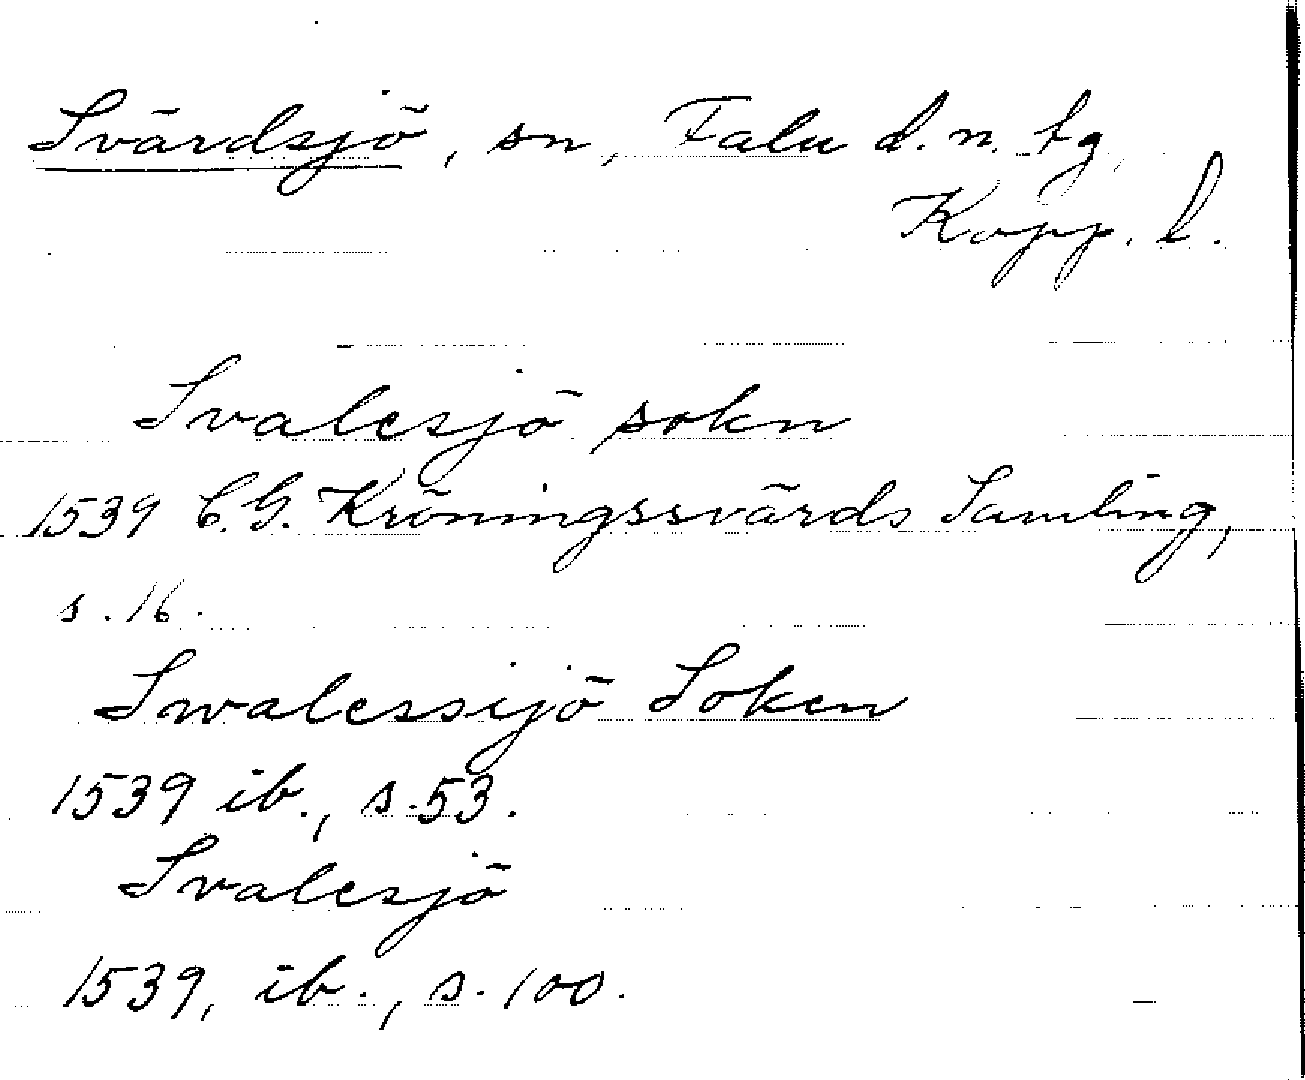 Svärdsjö, sn, Falu d. n. tg,
Kopp. l.
Svalesjö sokn
1539 C. G. Kröningssvärds Samling,
s. 16.
Swalessijö Soken
1539 ib., s. 53.
Svalesjö
1539, ib., s. 100.